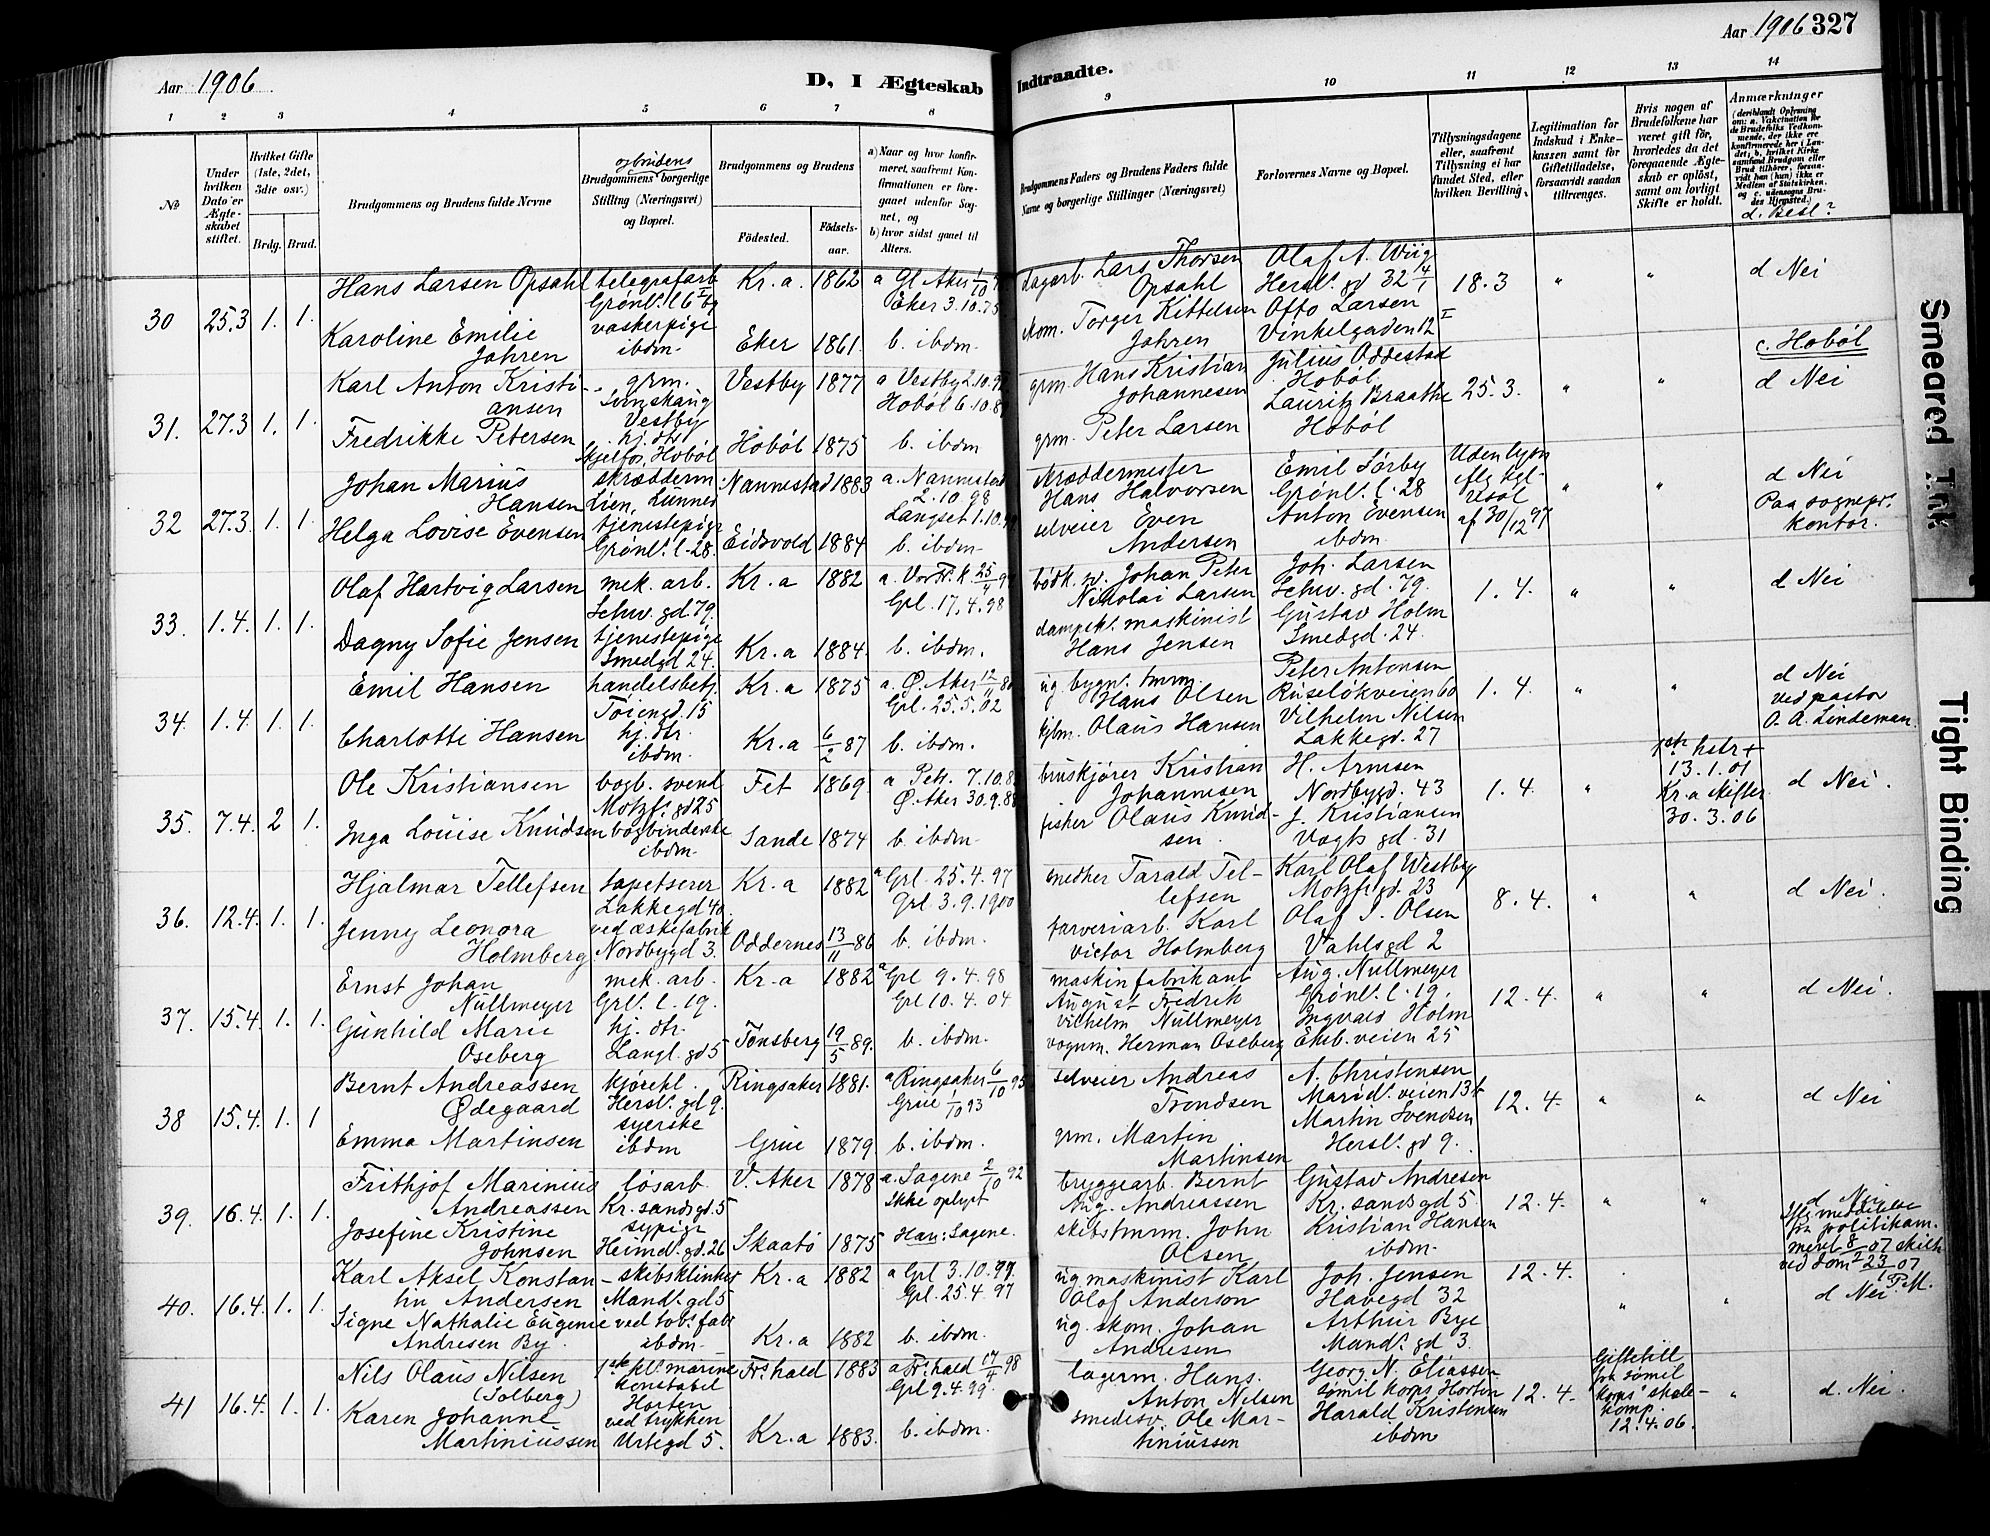 Aar 1906
D, I Ægteskab
Indtraadte.
Aar 1906 327
1 2 3 4 5 6 7 8 9 10 11 12 13 14
No
Under hvilken Dato er Ægteskabet stiftet.
Hvilket Gifte (1ste, 2det, 3die osv.)
Brdg. Brud.
Brudgommens og Brudens fulde Nevne
og brudens
Brudgommens borgerlige Stilling (Næringsvei) og Bopæl.
Brudgommens og Brudens
Fødested.
Fødselsaar.
a) Naar og hvor konfirmeret, saafremt Konfirmationen er foregaaet udenfor Sognet, og
b) hvor sidst gaaet til Alters.
Brudgommens Faders og Brudens Faders fulde Navne og borgerlige Stillinger (Næringsvei)
Forlovernes Navne og Bopæl.
Tillysningsdagene eller, saafremt Tillysning ei har fundet Sted, efter hvilken Bevilling.
Legitimation for Indskud i Enkekassen samt for Giftetilladelse, forsaavidt saadan tiltrænges.
Hvis nogen af Brudefolkene har været gift før, hvorledes da det foregaaende Ægteskab er opløst, samt om lovligt Skifte er holdt.
Anmærkninger
(deriblandt Opførsing om: a. Vakcination for de Brudefolks Vedkommende, der ikke ere konfirmerede her i Landet; b. hvilket Kirkesamfund Brudgom eller Brud tilhører, forsaavidt han (hun) ikke er Medlem af Statskirken, og c. udensogns Brudes Hjemsted.)
d. Besl?
30 25.3 1. 1.
Hans Larsen Opsahl
telegrafarb
Grønl. l 6 I
Kr.a. 1862
a Gl Aker
dagarb. Lars Thorsen
Opsahl
Olaf A. Wiig
Hersl. gd 32
18.3 " " d Nei
Karoline Emilie
Johren
vaskerpige
ibdm.
Eker 1861
Eker 3.10.75
b. ibdm.
skom. Torger Kittelsen
Johren
Otto Larsen
Vinkelgaden 12 I
31. 27.3 1. 1.
Karl Anton Kristi-
ansen
grm.
Vestby
Vestby 1877
a Vestby 2.10.92
grm. Hans Kristian
Johannesen
Julius Oddestad
Hobøl
25.3. " "
c. Hobøl
d Nei
Fredrikke Petersen
hj. dtr
Hobøl
Hobøl 1875
Hobøl 6.10.8
b. ibdm
grm. Peter Larsen
Lauritz Braathe
Hobøl
32 27.3. 1. 1.
Johan Marius
Hansen
skrædderm
Lien, Lunner
Nannestad 1883
a. Nannestad
2.10.98
skræddermester
Hans Halvorsen
Emil Sørby
Grønl. l. 28
Uden lysn
iflg kgl.
resol
af 30/12 97
" "
d Nei
Paa sognepr.
kontor.
Helga Lovise Evensen
tjenestepige
Grønl. l. 28.
Eidsvold 1884
Langset 1.10.
b. ibdm
selveier Even
Andersen
Anton Evensen
ibdm
33. 1.4. 1. 1.
Olaf Hartvig Larsen
mek. arb.
Schw. gd. 79.
Kr.a 1882
a. Vor Fr. k.
bødk. sv. Johan Peter
Nikolai Larsen
Joh. Larsen
Schw. gd. 79.
1.4. " " d Nei
Dagny Sofie Jensen
tjenestepige
Smedgd 24.
Kr.a 1884.
Grl. 17.4.98
b. ibdm.
dampsk. maskinist
Hans Jensen
Gustav Holm
Smedgd. 24.
34. 1.4. 1. 1.
Emil Hansen
handelsbetj.
Tøiengd. 15
Kr.a 1875
a. Ø. Aker
Grl. 25.5.02
ug. bygnt. tmrm.
Hans Olsen
Peter Antonsen
Ruseløkveien 60
1.4. " "
d Nei
ved pastor
O. A. Lindeman.
Charlotte Hansen
hj. dtr.
ibdm.
Kr.a 6/2 87
b. ibdm.
kjbm. Olaus Hansen
Vilhelm Nilsen
Lakkegd. 27
35. 7.4. 2 1.
Ole Kristiansen
bogb. svend
Motzf. gd 25
Fet 1869
a Petr. 7.10.8
bruskjører Kristian
Johannesen
H. Arnesen
Nordbygd. 43
1.4. "
1ste hstr +
13.1.01
Kr.a skifter.
30.3.06
d Nei.
Inga Louise Knudsen
bogbinderske
ibdm.
Sande 1874
Ø. Aker 30.9.88
b. ibdm
fisker Olaus Knud-
sen.
J. Kristiansen
Vogts gd. 31
36. 12.4. 1. 1.
Hjalmar Tellefsen
tapetserer
Lakkegd 40.
Kr.a 1882
a Grl. 25.4.97
snedker Tarald Tel-
lefsen
Karl Olaf Westby
Motzf. gd. 23
8.4. " " d Nei.
Jenny Leonora
Holmberg
ved æskefabrik
Nordbygd 3.
Oddernes 13/11 86
Grl. 3.9.1900
b. ibdm.
farveriarb. Karl
Victor Holmberg
Olaf S. Olsen
Vahlsgd 2
37. 15.4. 1. 1.
Ernst Johan
Nullmeyer
mek. arb.
Grl. l. 19.
Kr.a 1882
a Grl 9.4.98
maskinfabrikant
August Fredrik
Vilhelm Nullmeyer
Aug. Nullmeyer
Grønl. l. 19.
12.4. " " d Nei.
Gunhild Marie
Oseberg
hj. dtr.
Langl. gd 5
Tønsberg 19/5 89.
Grl 10.4.04
b. ibdm.
vognm. Herman Oseberg
Ingvald Holm
Ekeb. veien 25
38 15.4. 1. 1
Bernt Andreassen
Ødegaard
kjørekl.
Hersl. gd 9.
Ringsaker 1881.
a Ringsaker 6/10 95
selveier Andreas
Trondsen
A. Christensen
Marid. veien 13
12.4. " " d Nei
Emma Martinsen
syerske
ibdm
Grue 1879
Grue 1/10 93
b. ibdm.
grm. Martin
Martinsen
Martin Svendsen
Hersl. gd 9.
39. 16.4. 1. 1.
Frithjof Marinius
Andreassen
løsarb.
Kr. sands gd. 5
V. Aker 1878
a. Sagene 2/10 92
bryggearb. Bernt
Aug. Andreassen
Gustav Andresen
Kr. sands gd 5
12.4. " "
d Nei
Iflg meddelelse
fra politikam.
meret 8/1 07 skilt
ved dom 23/1 07
P.M.
Josefine Kristine
Johnsen
sypige
Heimd. gd. 26
Skaatø 1875
Ikke oplyst
Han: Sagene.
skibstmrm. John
Olsen
Kristian Hansen
ibdm.
40. 16.4. 1. 1.
Karl Aksel Konstan-
tin Andersen
skibsklinker
Mandl. gd 5
Kr.a 1882
a Grl 3.10.97.
ug. maskinist Karl
Olof Anderson
Joh. Jensen
Havegd 32
12.4. " "
d Nei
Signe Nathalie Eugenie
Andresen By.
ved tob. fabr
ibdm.
Kr.a 1882
Grl. 25.4 97
b. ibdm.
ug. skom. Johan
Andresen
Arthur Bye
Mandl. gd 3.
41 16.4. 1. 1.
Nils Olaus Nilsen
(Solberg)
1ste kl. marine
konstabel
Horten
Fr.hald 1883
a Fr.hald 17/4 98
lagerm. Hans
Anton Nilsen
Georg N. Eliassen
sømil korps Horten
12.4.
Giftetill
fra sømil
korps' skole-
komp.
12.4.06.
"
d. Nei.
Karen Johanne
Martiniussen
ved trykken
Urtegd 5.
Kr.a 1883.
Grl 9.4.99
b. ibdm.
smedesv. Ole Mar-
tiniussen
Harald Kristensen
ibdm
Smeared Ink
Tight Binding